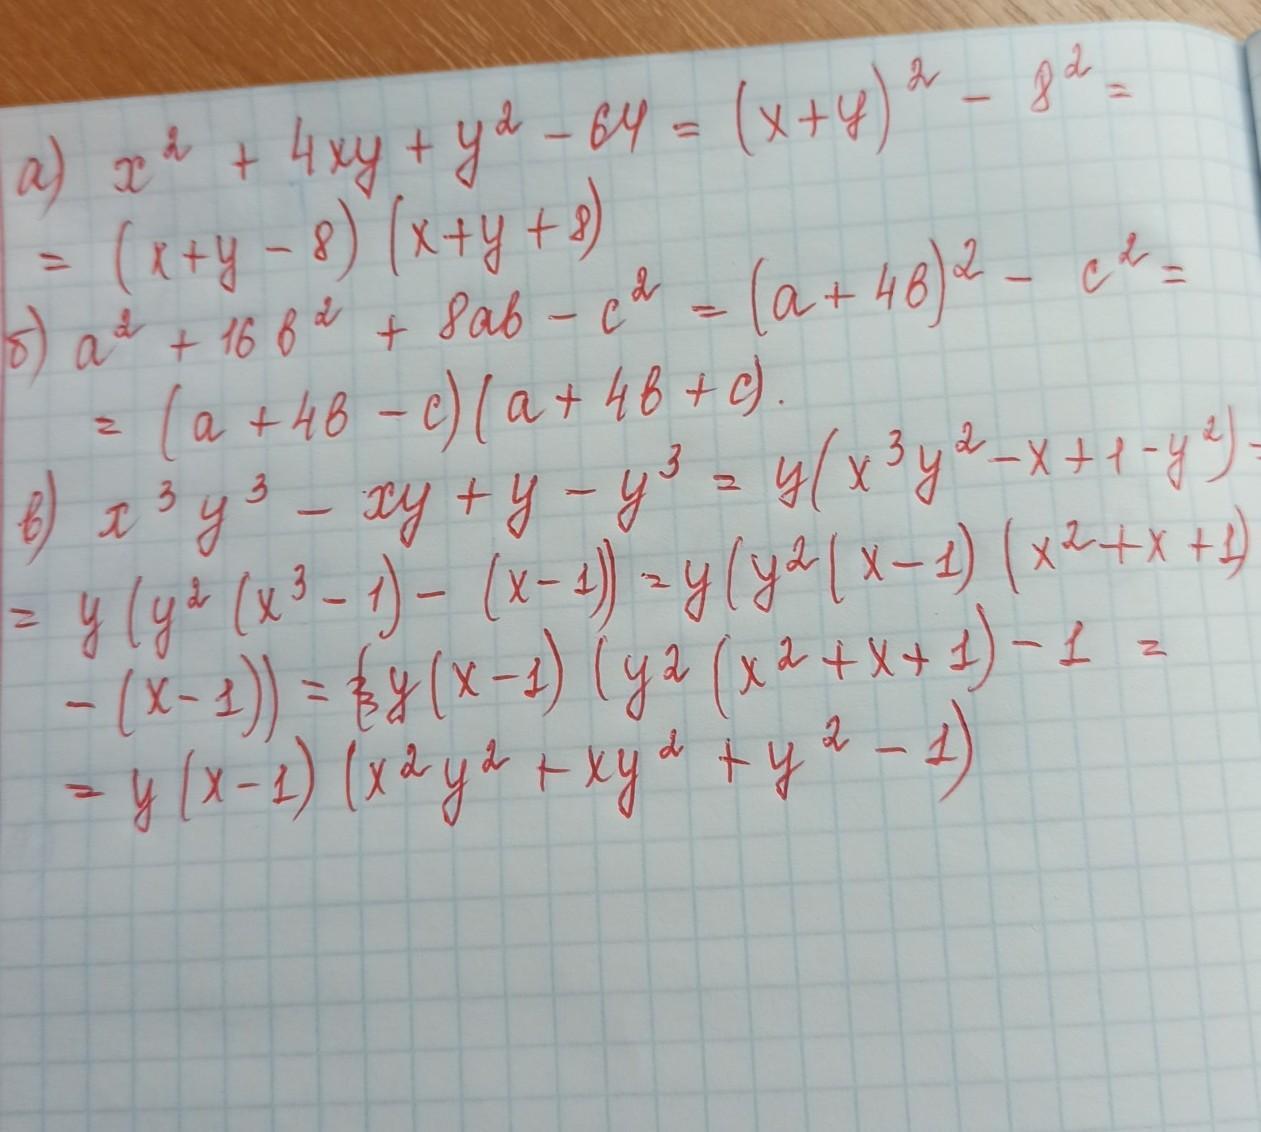 а) x² + 4xy + y² - 64 = (x+y)² - 8² =
= (x+y - 8) (x+y + 8)
б) a² + 16b² + 8ab - c² = (a + 4b)² - c² =
= (a + 4b - c)(a + 4b + c).
в) x³y³ - xy + y - y³ = y(x³y² - x + 1 - y²) =
= y (y² (x³ - 1) - (x - 1)) = y (y² (x - 1) (x² + x + 1)
- (x - 1)) = y (x - 1) (y² (x² + x + 1) - 1 =
= y (x - 1) (x²y² + xy² + y² - 1)